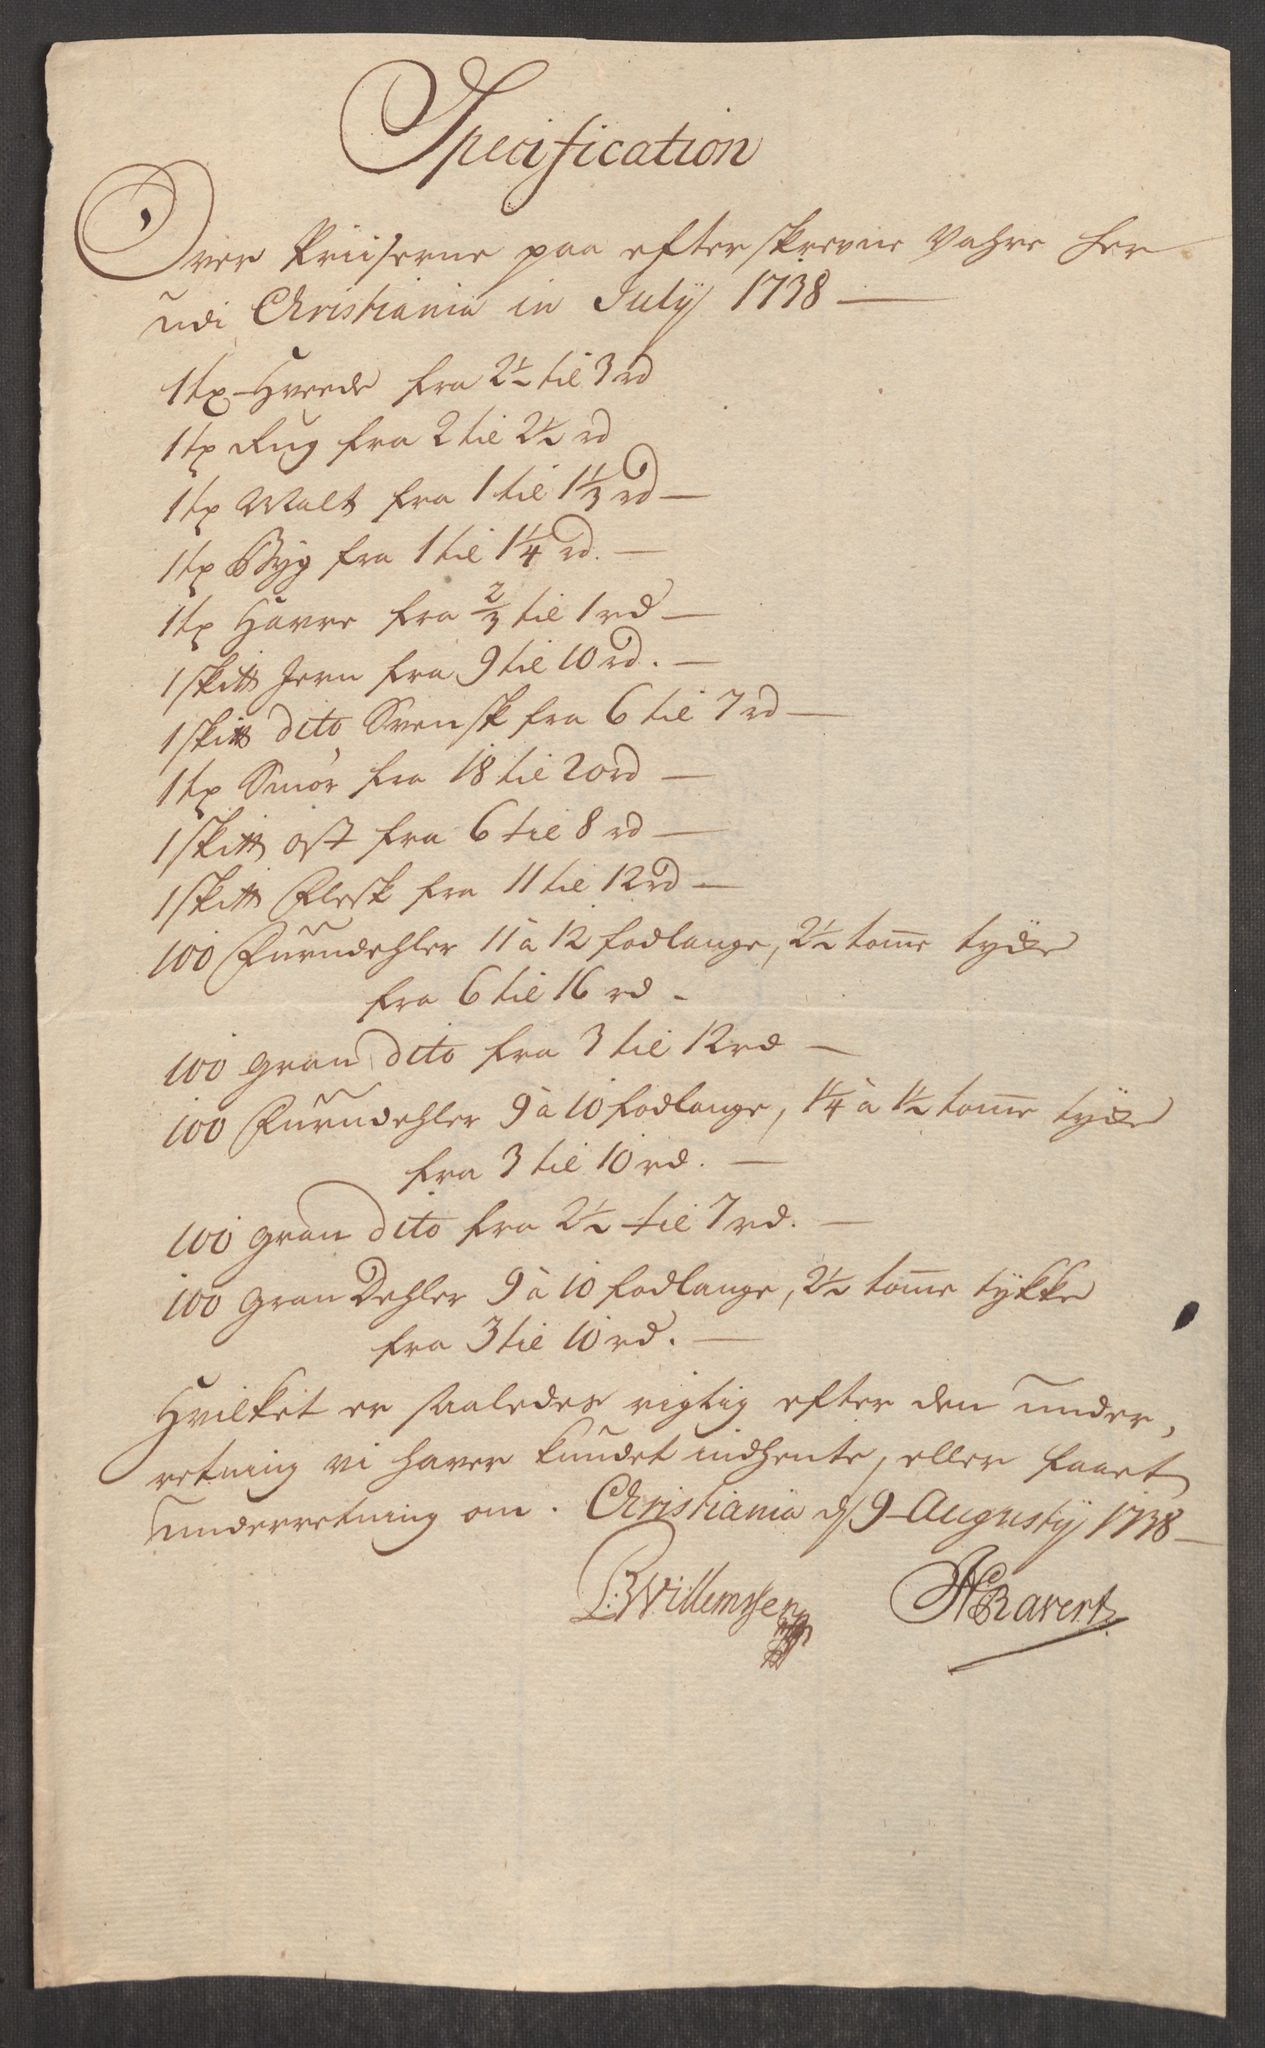 Specification
Over Priiserne paa efterskrevne Vahre her
udi Christiania in Julÿ 1738
1 tx Hveede fra 2½ til 3 rd
1 tx Rug fra 2 til 2½ rd
1 tx Malt fra 1 til 1⅓ rd
1 tx Byg fra 1 til 1¼ rd.
1 tx Havre fra ⅔ til 1 rd
1 skitt Jern fra 9 til 10 rd.
1 skitt dito Svensk fra 6 til 7 rd
1 tx Smör fra 18 til 20 rd
1 skitt ost fra 6 til 8 rd
1 skitt Flesk fra 11 til 12 rd
100 Furudehler 11 à 12 fodlange, 2½ tom̅e
fra 6 til 16 rd
100 gran dito fra 3 til 12 rd
100 Furudehler 9 à 10 fodlange, 1¼ à 1½ tom̅e
fra 3 til 10 rd.
100 gran dito fra 2½ til 7 rd.
100 gran Dehler 9 à 10 fodlange, 2½ tom̅e tÿkke
fra 3 til 10 rd.
Hvilket er saaledes rigtig efter den under,
retning vi haver kundet indhente, eller faaet
underretning om. Christiania d 9 Augustÿ 1738
Willemssen HBavert